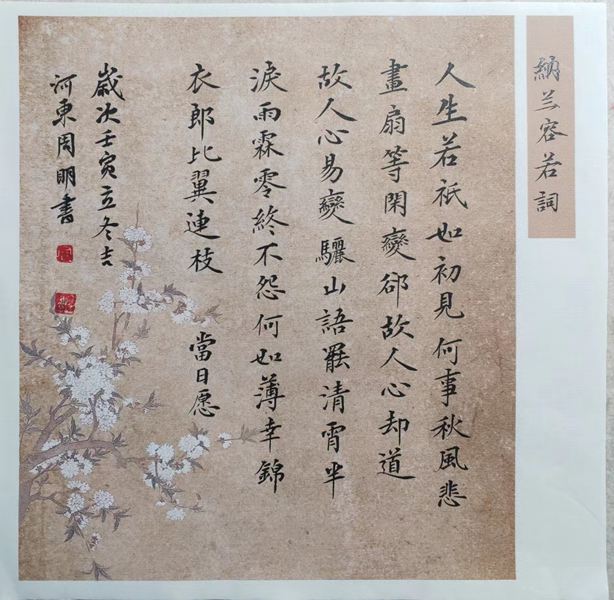 納兰容若詞
人生若祇如初見何事秋風悲
畫扇等閑變郤故人心却道
故人心易變驪山語罷清霄半
淚雨霖零終不怨何如薄幸錦
衣郎比翼連枝 當日愿
歲次壬寅立冬吉
河東周明書